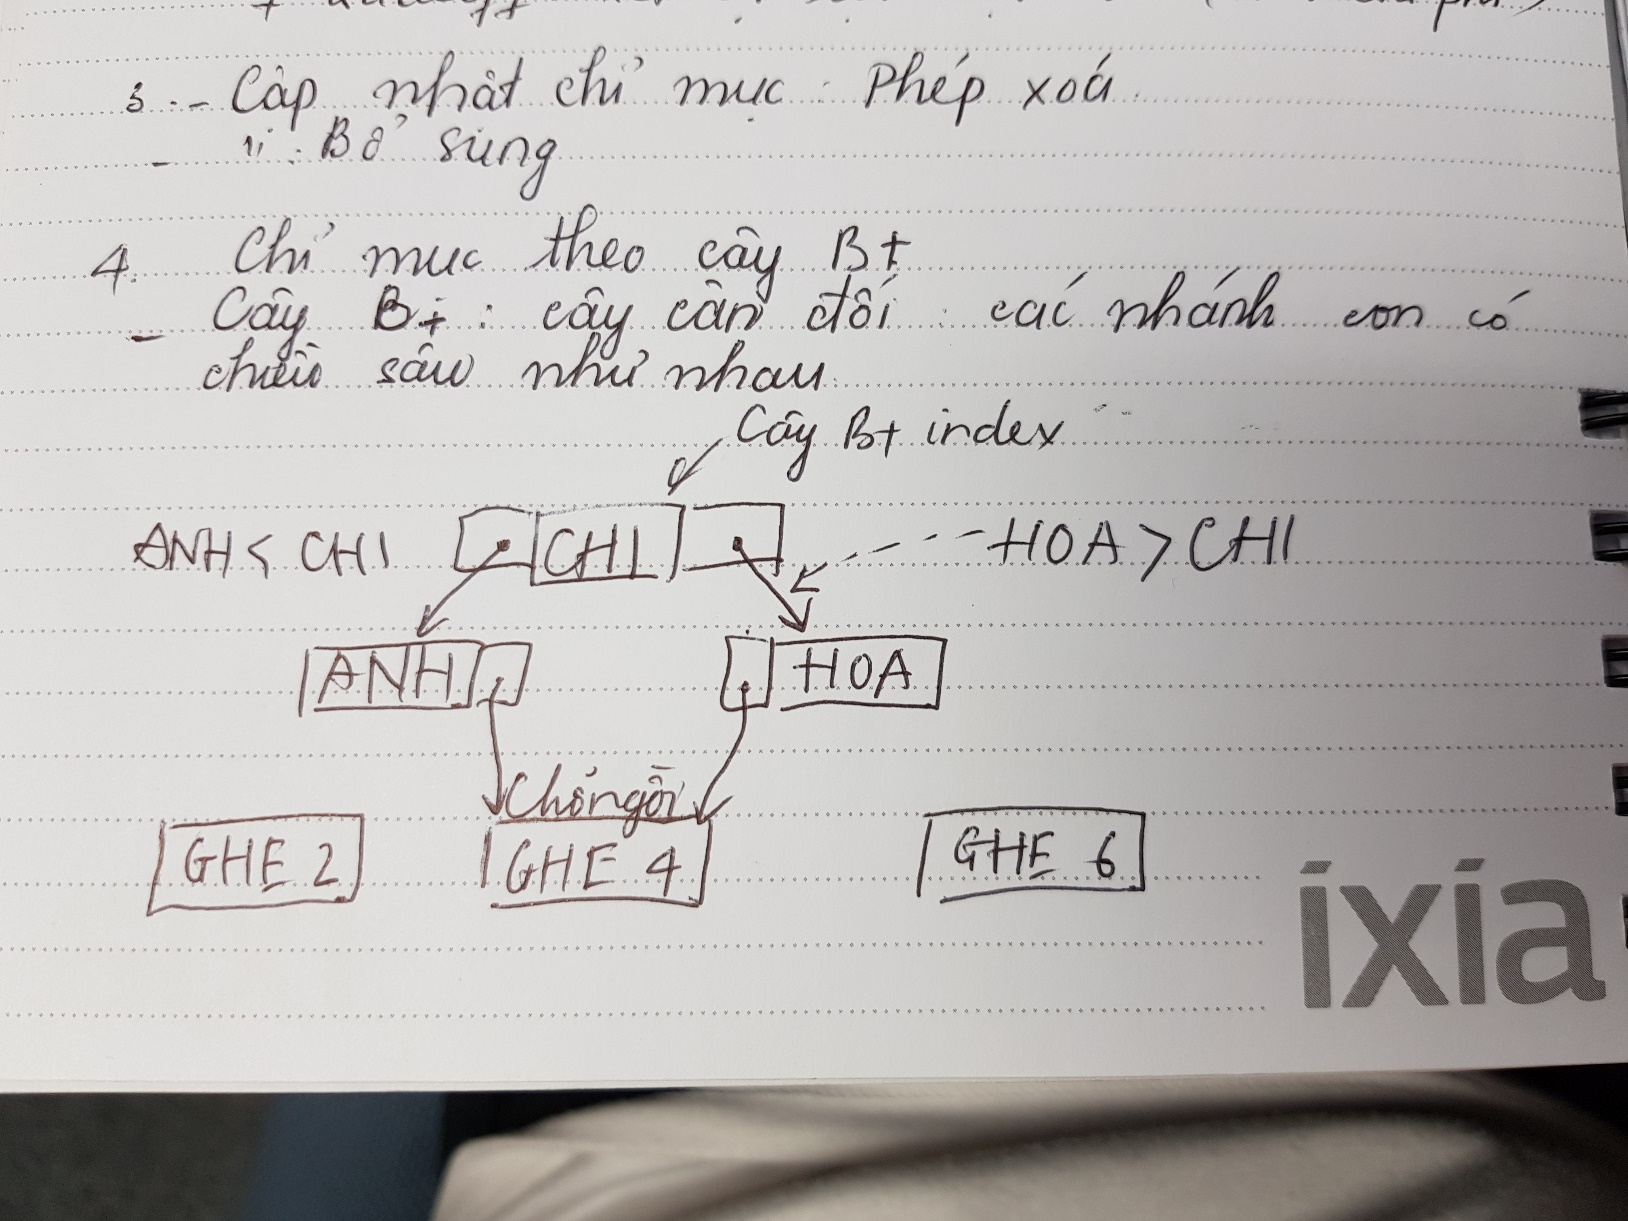 3. - Cập nhật chỉ mục : Phép xoá.
- ii : Bổ sung
4. Chỉ mục theo cây B+
- Cây B+ : cây cân đối : các nhánh con có
chiều sâu như nhau.
Cây B+ index
ANH < CHI CHI HOA > CHI
ANH HOA
Chỗ ngồi
GHE 2 GHE 4 GHE 6
ixia